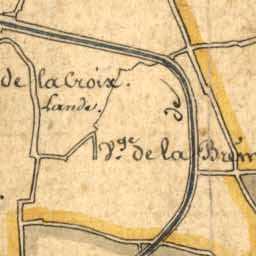 de la Croix.
Lande.
de
V.ge de la Brem